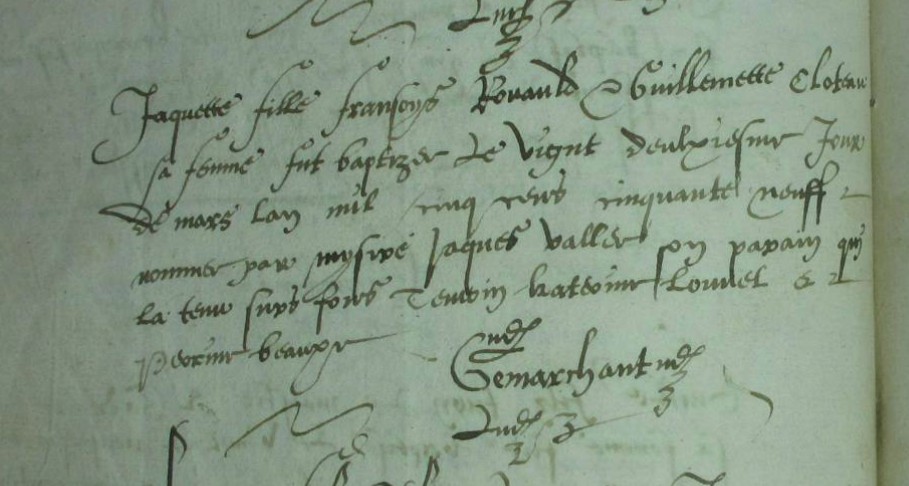 Jaquette fille franſoys Rouauld & Guillemette Cloteau
sa femme fut baptizee le vignt deulxiesme Jour
de mars lan mil cinq cens cinquante neuff
nommee par mysire Jaques Valler son parain qui
la tenu surs fons Temoin Katerine Louuel &
Perrine beaupe
Gemarchant